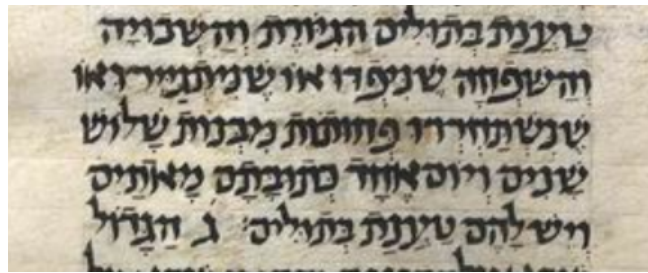 טַעֲנַת בְּתוּלִים הַגִּיּוֹרֶת וְהַשְּׁבוּיָה
וְהַשִּׁפְחָה שֶׁנִּיפְדּוּ אוֹ שֶׁנִּיתְגַּיְּירוּ אוֹ
שֶׁנִּשְׁתַּחְרְרוּ פְּחוּתוֹת מִבְּנוֹת שָׁלוֹשׁ
שָׁנִים וְיוֹם אֶחָד כְּתוּבָּתָם מָאתַיִם
וְיֵשׁ לָהֶם טַעֲנַת בְּתוּלִים׃ ג הַגָּדוֹל